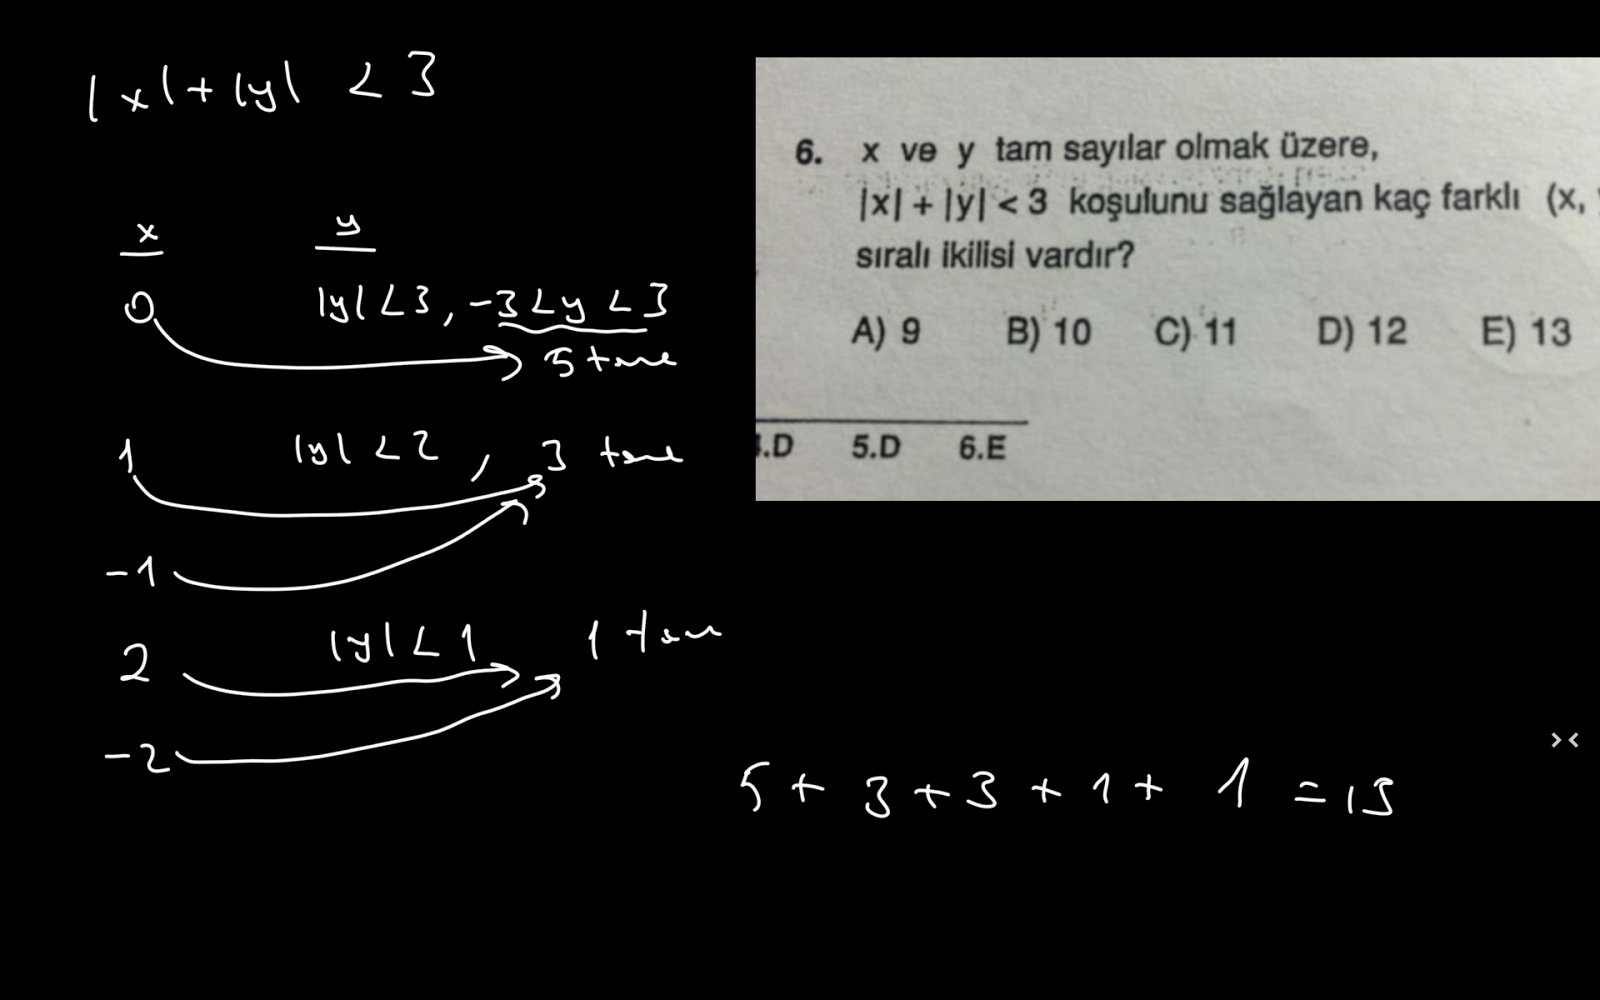 |x|+|y| < 3
x y
0 |y| < 3, -3 < y < 3
5 tane
1 |y| < 2, 3 tane
-1
2 |y| < 1 1 tane
-2
5 + 3 + 3 + 1 + 1 = 13
6. x ve y tam sayılar olmak üzere,
|x| + |y| < 3 koşulunu sağlayan kaç farklı (x,
sıralı ikilisi vardır?
A) 9 B) 10 C) 11 D) 12 E) 13
.D 5.D 6.E